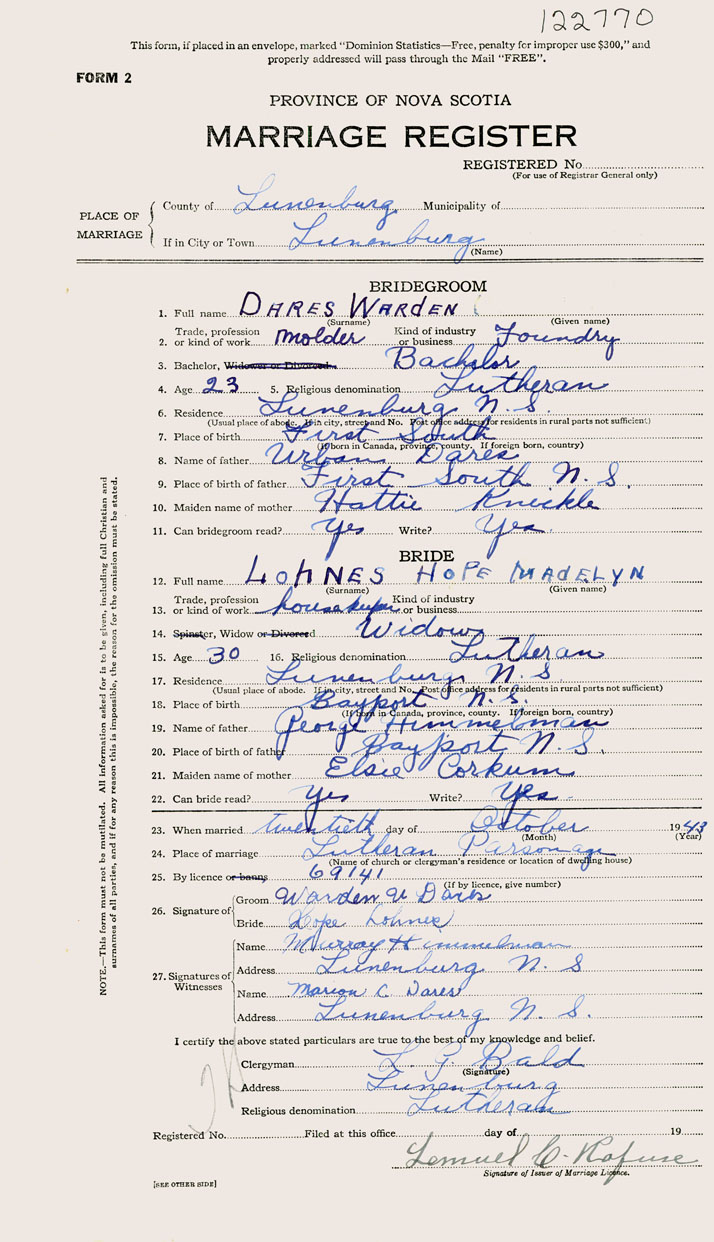 122770
This form, if placed in an envelope, marked "Dominion Statistics—Free, penalty for improper use $300," and
properly addressed will pass through the Mail "FREE".
FORM 2
PROVINCE OF NOVA SCOTIA
MARRIAGE REGISTER
REGISTERED No.
(For use of Registrar General only)
PLACE OF MARRIAGE
County of Lunenburg Municipality of
If in City or Town Lunenburg
(Name)
BRIDEGROOM
1. Full name DARES WARDEN
(Surname) (Given name)
2. Trade, profession or kind of work Molder Kind of industry or business Foundry
3. Bachelor, Widower or Divorced Bachelor
4. Age 23 5. Religious denomination Lutheran
6. Residence Lunenburg N. S.
(Usual place of abode. If in city, street and No. Post office address for residents in rural parts not sufficient)
7. Place of birth First South
(If born in Canada, province, county. If foreign born, country)
8. Name of father Urban Dares
9. Place of birth of father First South N. S.
10. Maiden name of mother Hattie Knickle
11. Can bridegroom read? Yes Write? Yes
BRIDE
12. Full name LOHNES HOPE MADELYN
(Surname) (Given name)
13. Trade, profession or kind of work housekeeper Kind of industry or business
14. Spinster, Widow or Divorced Widow
15. Age 30 16. Religious denomination Lutheran
17. Residence Lunenburg N. S.
(Usual place of abode. If in city, street and No. Post office address for residents in rural parts not sufficient)
18. Place of birth Bayport N. S.
(If born in Canada, province, county. If foreign born, country)
19. Name of father George Himmelman
20. Place of birth of father Bayport N. S.
21. Maiden name of mother Elsie Corkum
22. Can bride read? Yes Write? Yes
23. When married twentieth day of October 1943
(Month) (Year)
24. Place of marriage Lutheran Parsonage
(Name of church or clergyman's residence or location of dwelling house)
25. By licence or banns 69141
(If by licence, give number)
26. Signature of
Groom Warden U Dares
Bride Hope Lohnes
27. Signatures of Witnesses
Name Murray Himmelman
Address Lunenburg N. S
Name Marion C Dares
Address Lunenburg N. S.
I certify the above stated particulars are true to the best of my knowledge and belief.
Clergyman L. G. Bald
(Signature)
Address Lunenburg
Religious denomination Lutheran
Registered No. Filed at this office day of 19
Lemuel C. Rafuse
Signature of Issuer of Marriage Licence.
[SEE OTHER SIDE]
NOTE.—This form must not be mutilated. All information asked for is to be given, including full Christian and
surnames of all parties, and if for any reason this is impossible, the reason for the omission must be stated.